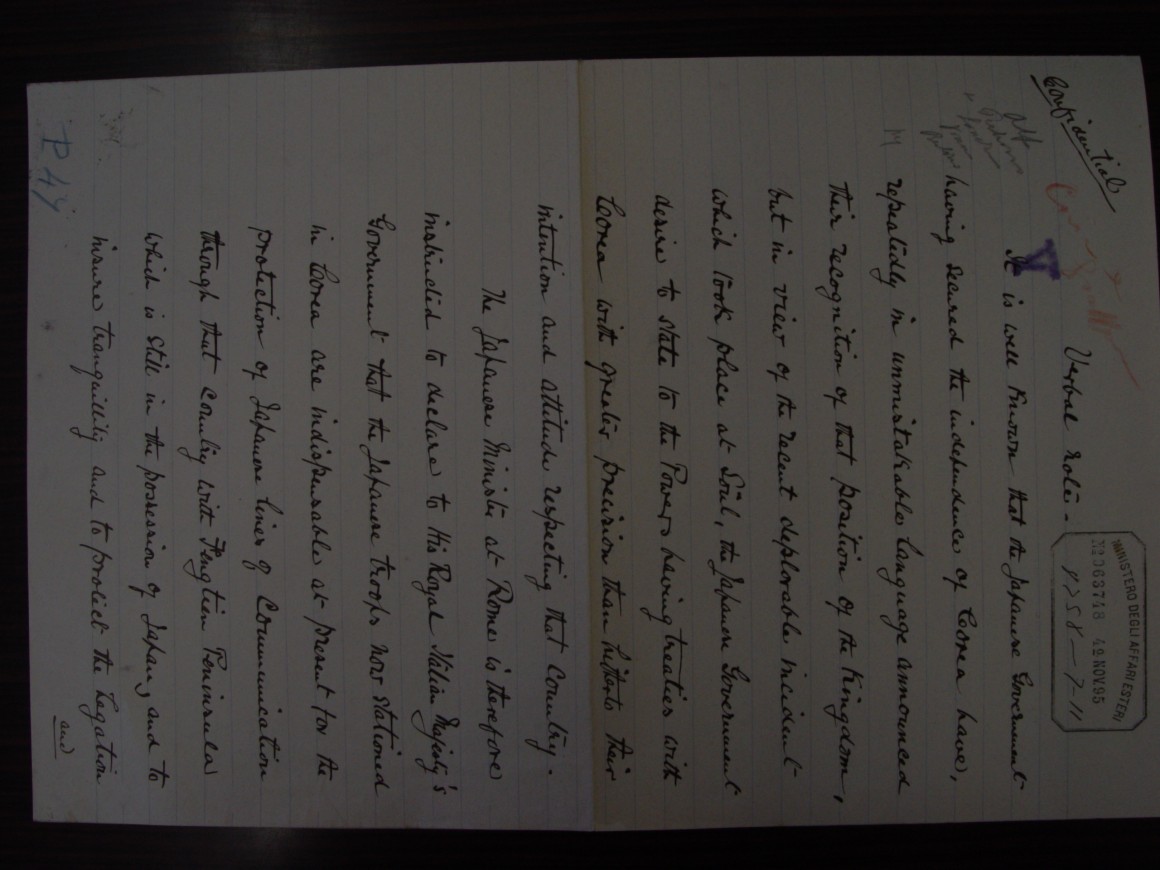 Confidential
Verbal note.
MINISTERO DEGLI AFFARI ESTERI
NOV. 95
It is well known that the Japanese Government
having secured the independence of Corea have,
repeatedly in unmistakable language announced
their recognition of that position of the Kingdom,
but in view of the recent deplorable incident
which took place at Söul, the Japanese Government
desire to state to the Powers having treaties with
Corea with greater precision than hitherto their
intention and attitude respecting that Country.
The Japanese Minister at Rome is therefore
instructed to declare to His Royal Italian Majesty's
Government that the Japanese troops now stationed
in Corea are indispensable at present for the
protection of Japanese lines of Communication
through that country with Fengtien Peninsula
which is still in the possession of Japan, and to
insure tranquillity and to protect the Legation
and